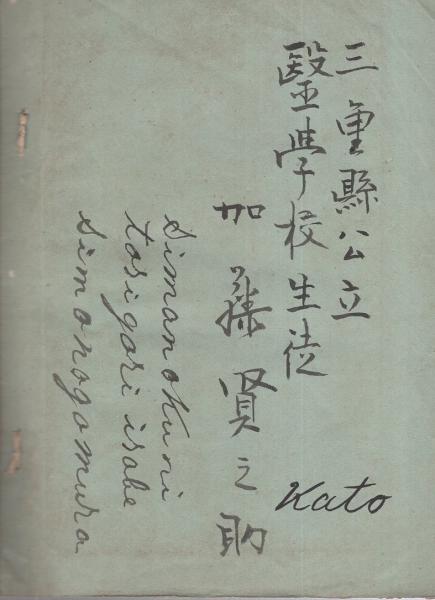 三重縣公立
醫學校生徒
加藤賢之助
Kato
simanokuni
tosigori isobe
simonogomura